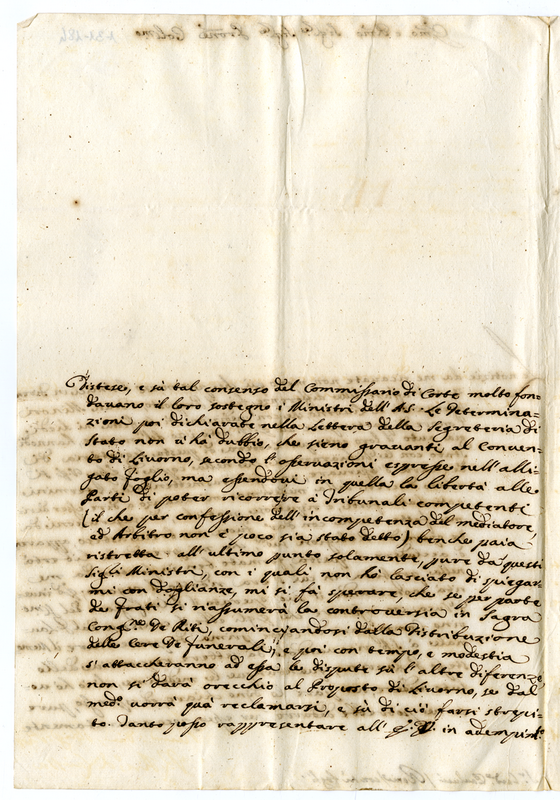 distese, e sù tal consenso del Commissario di Corte molto fon-
davano il loro sostegno i Ministri dell'A.S. Le determina-
zioni poi dichiarate nella Lettera della Segreteria di
Stato non v'hà dubbio, che sieno gravanti al Conven-
to di Livorno, secondo l'osservazioni espresse nell'alli-
gato foglio, ma essendovi in quella la libertà alle
Parti di poter ricorrere à Tribunali competenti
(il che per confessione dell'incompetenza del mediatore,
ed Arbitro non è poco sia stato detto) benche paia
ristretta all'ultimo punto solamente, pure da questi
Sigri Ministri, con i quali non hò lasciato di spiegar-
mi con doglianze, mi si fà sperare, che se per parte
de Frati si riassumerà la controversia in Sagra
Congne De Riti, cominciandosi dalla Distribuzione
delle Cere De Funerali; e poi con tempo, e modestia
s'attaccheranno ad essa le dispute sù l'altre diferenze
non si darà orecchio al Proposto di Livorno, se dal
medo vorrà quà reclamarsi, e sù di ciò farsi strepi-
to. Tanto posso rappresentare all' in adempimo